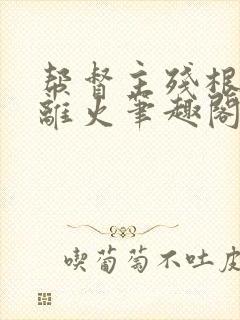 帮督主残根
离火笔趣阁
喫葡萄不吐皮